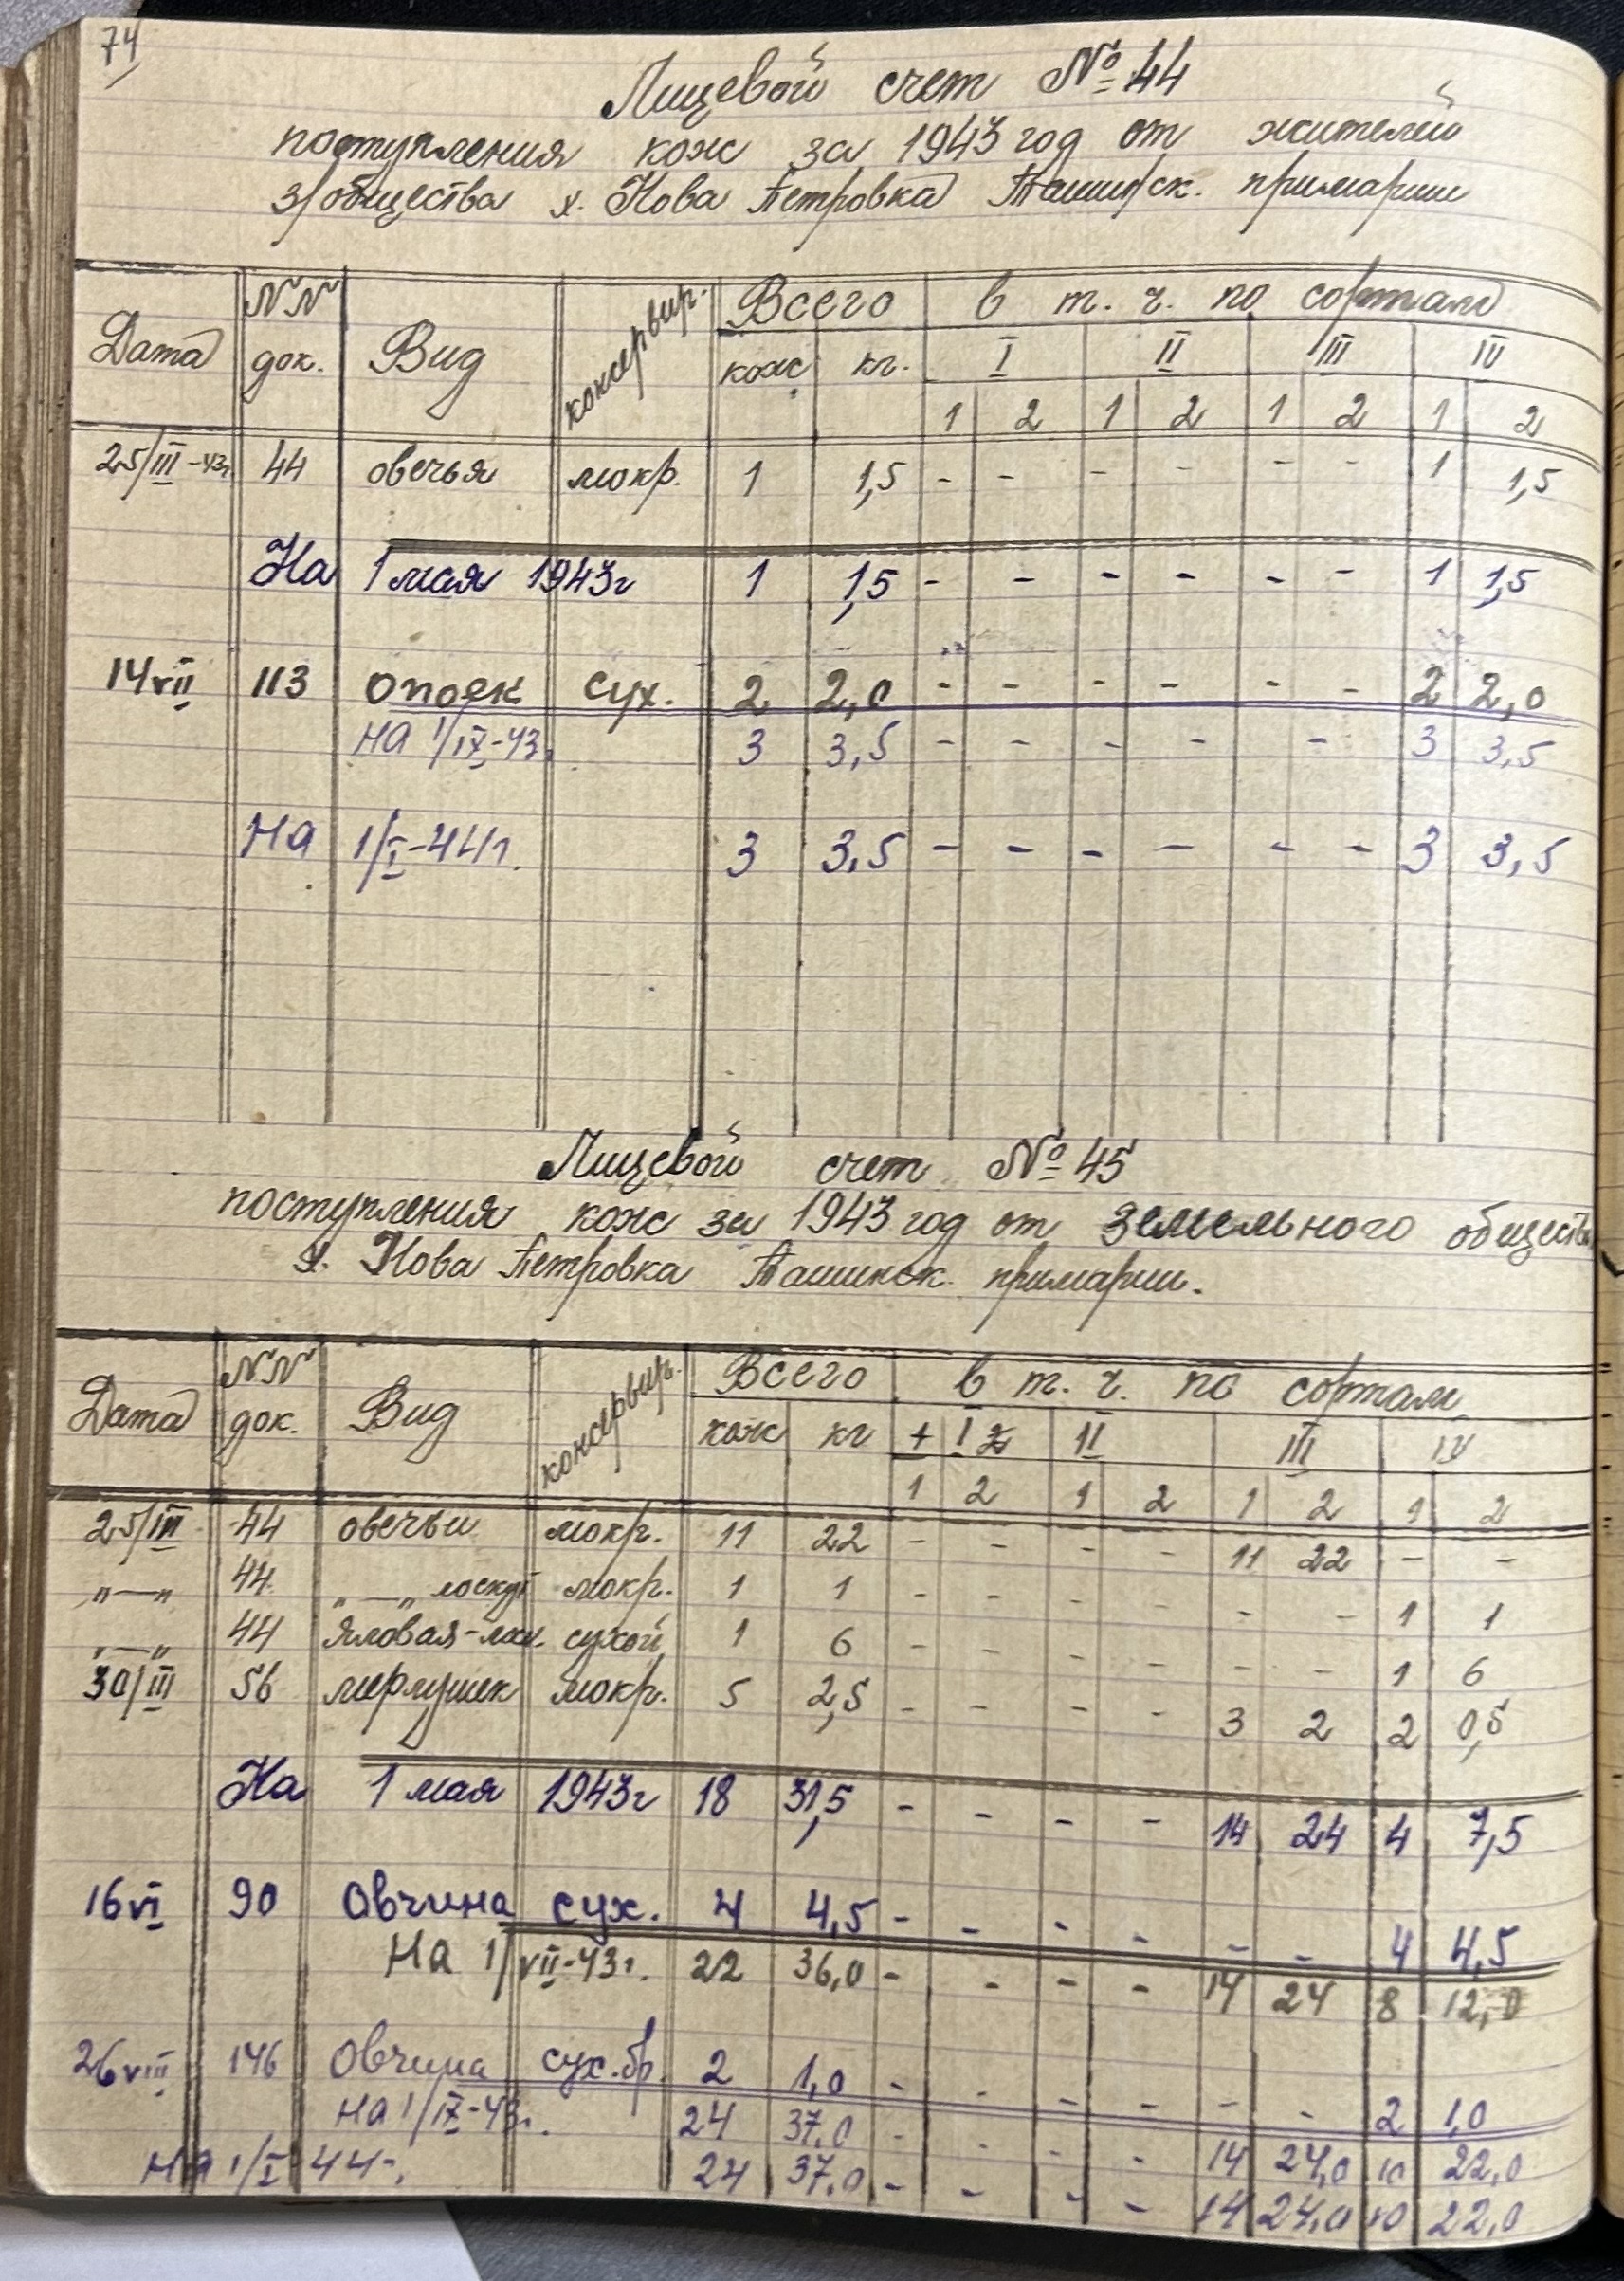 74
Лицевой счет № 44
поступления кож за 1943 год от жителей
з/общества х. Нова Петровка Ташинск. примарии
Дата №№ док. Вид консервир. Всего в т. ч. по сортам
кож кг. I II III IV
1 2 1 2 1 2 1 2
25/III-43г. 44 овечья мокр. 1 1,5 - - - - - - 1 1,5
На 1 мая 1943г 1 1,5 - - - - - - 1 1,5
14 VII 113 опоек сух. 2 2,0 - - - - - - 2 2,0
на 1/IX-43г. 3 3,5 - - - - - 3 3,5
На 1/I-44г. 3 3,5 - - - - - - 3 3,5
Лицевой счет № 45
поступления кож за 1943 год от земельного общества
х. Нова Петровка Ташинск. примарии.
Дата №№ док. Вид консервир. Всего в т. ч. по сортам
кож кг I II III IV
1 2 1 2 1 2 1 2
25/III 44 овечьи мокр. 11 22 - - - - 11 22 - -
"—" 44 "—" лоскут мокр. 1 1 - - - - - - 1 1
"—" 44 яловая-лоск. сухой 1 6 - - - - - - 1 6
30/III 56 мерлушек мокр. 5 2,5 - - - - 3 2 2 0,5
На 1 мая 1943г 18 31,5 - - - - 14 24 4 7,5
16 VI 90 Овчина сух. 4 4,5 - - - - - - 4 4,5
На 1/VII-43г. 22 36,0 - - - - 14 24 8 12,0
26 VIII 146 Овчина сух.бр. 2 1,0 - - - - - - 2 1,0
на 1/IX-43г. 24 37.0 - - - - 14 24,0 10 22,0
На 1/I-44г. 24 37.0 - - - - 14 24,0 10 22,0